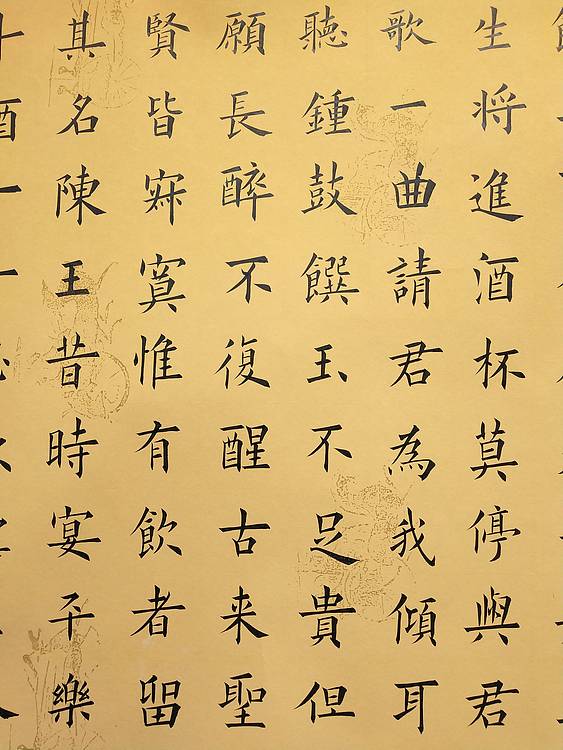 生将進酒杯莫停與君
歌一曲請君為我傾耳
聽鍾鼓饌玉不足貴但
願長醉不復醒古来聖
賢皆寂寞惟有飲者留
其名陳王昔時宴平樂